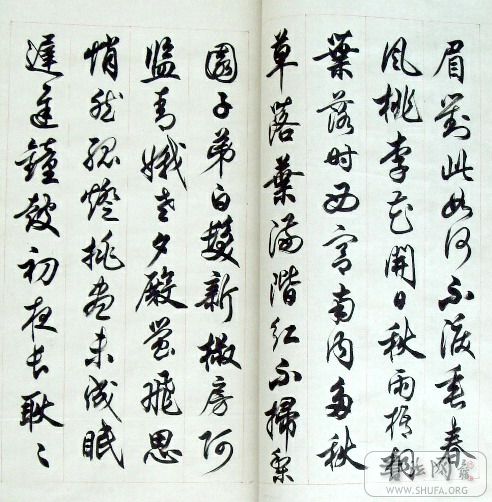 眉對此如何不淚垂春
風桃李花開日秋雨梧桐
葉落時西宮南内多秋
草落葉滿階紅不掃梨
園子弟白髮新椒房阿
监青娥老夕殿螢飛思
悄然孤燈挑盡未成眠
遲遲鐘鼓初夜長耿〻
书法网
WWW.SHUFA.ORG